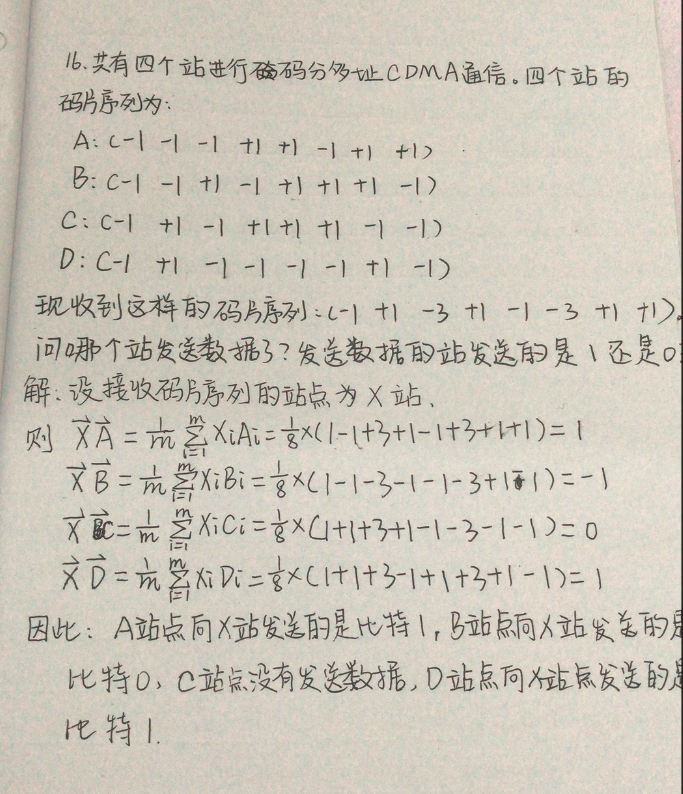 16.共有四个站进行码分多址CDMA通信。四个站的
码片序列为:
A:(-1 -1 -1 +1 +1 -1 +1 +1)
B:(-1 -1 +1 -1 +1 +1 +1 -1)
C:(-1 +1 -1 +1 +1 +1 -1 -1)
D:(-1 +1 -1 -1 -1 -1 +1 -1)
现收到这样的码片序列:(-1 +1 -3 +1 -1 -3 +1 +1)。
问哪个站发送数据了?发送数据的站发送的是1还是0
解:设接收码片序列的站点为X站、
则 X⃗A⃗=1/m ∑(i=1→m) XiAi=1/8×(1-1+3+1-1+3+1+1)=1
X⃗B⃗=1/m ∑(i=1→m) XiBi=1/8×(1-1-3-1-1-3+1-1)=-1
X⃗C⃗=1/m ∑(i=1→m) XiCi=1/8×(1+1+3+1-1-3-1-1)=0
X⃗D⃗=1/m ∑(i=1→m) XiDi=1/8×(1+1+3-1+1+3+1-1)=1
因此:A站点向X站发送的是比特1,B站点向X站发送的是
比特0、C站点没有发送数据,D站点向X站点发送的是
比特1.